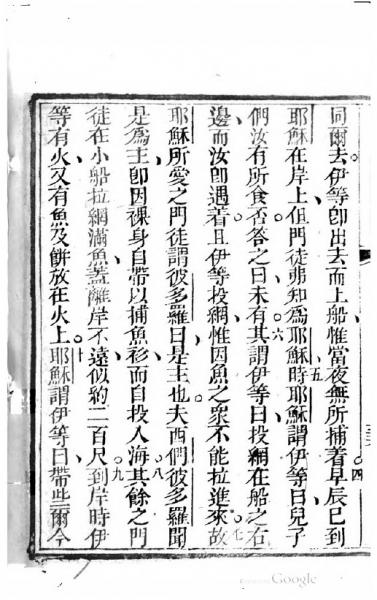 同爾去伊等卽出去而上船惟當夜無所捕着早辰已到
耶穌在岸上但門徒弗知爲耶穌時耶穌謂伊等曰兒子
們汝有所食否答之曰未有其謂伊等曰投網在船之右
邊而汝卽遇着且伊等投網惟因魚之衆不能拉進來故
耶穌所愛之門徒謂彼多羅曰是主也夫西們彼多羅聞
是爲主卽因裸身自帶以捕魚衫而自投入海其餘之門
徒在小船拉網滿魚蓋離岸不遠似約二百尺到岸時伊
等有火又有魚及餅放在火上耶穌謂伊等曰帶些爾今
四
五
六
七
八
九
十
Google